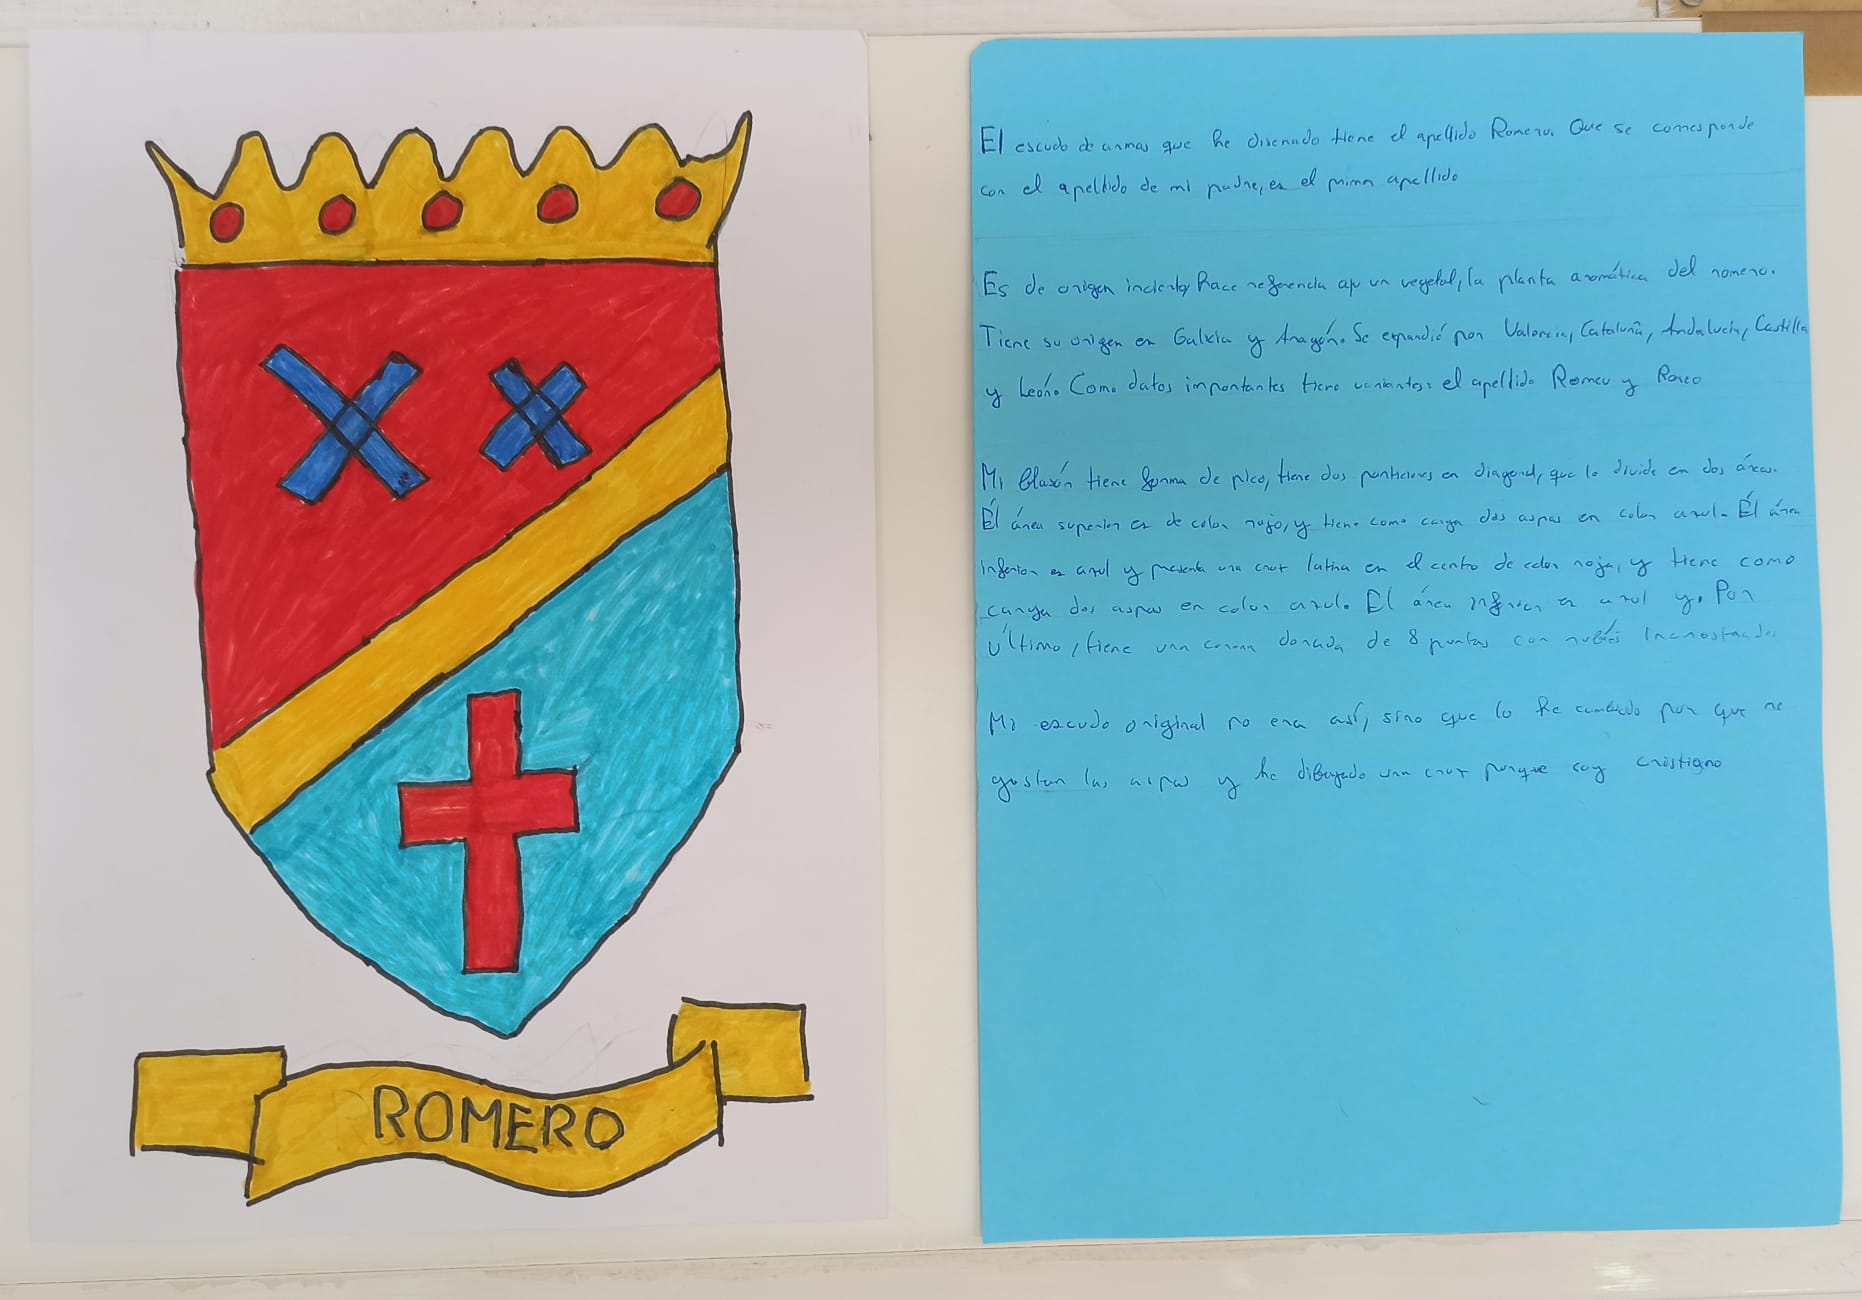 ROMERO
El escudo de armas que he disenado tiene el apellido Romero. Que se corresponde
con el apellido de mi padre, es el primer apellido
Es de origen incierto, hace referencia a un vegetal, la planta aromática del romero.
Tiene su origen en Galicia y Aragón. Se expandió por Valencia, Cataluña, Andalucía, Castilla
y León. Como datos importantes tiene variantes: el apellido Romeu y
Mi blasón tiene forma de pico, tiene dos particiones en diagonal, que lo divide en dos áreas.
Él área superior es de color rojo, y tiene como carga dos aspas en color azul. Él área
inferior es azul y presenta una cruz latina en el centro de color roja, y tiene como
carga dos aspas en color azul. El área inferior es azul y. Por
último, tiene una corona dorada de 8 puntas con rubíes incrustados
Mi escudo original no era así, sino que lo he cambiado por que me
gustan las aspas y he dibujado una cruz porque soy cristiano